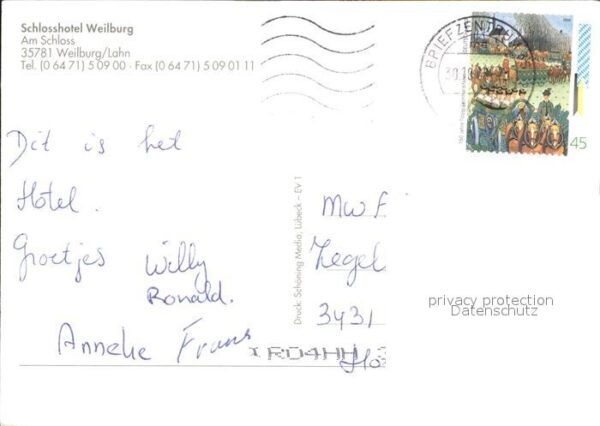 Schlosshotel Weilburg
Am Schloss
35781 Weilburg/Lahn
Tel. (0 64 71) 5 09 00 - Fax (0 64 71) 5 09 01 11
BRIEFZENTRUM
45
Dit is het
Hotel.
Groetjes Willy
Ronald.
Anneke Frans
Druck: Schöning Media, Lübeck – EV 1
MW F
Zegel
3431
Ho
privacy protection
Datenschutz